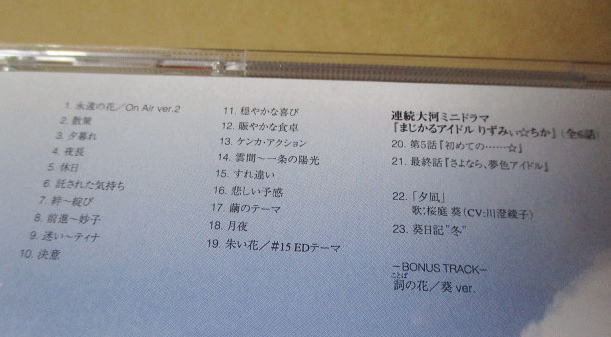 1. 永遠の花／On Air ver.2
2. 散策
3. 夕暮れ
4. 夜長
5. 休日
6. 託された気持ち
7. 絆〜綻び
8. 前進〜妙子
9. 迷い〜ティナ
10. 決意
11. 穏やかな喜び
12. 賑やかな食卓
13. ケンカ・アクション
14. 雲間〜一条の陽光
15. すれ違い
16. 悲しい予感
17. 繭のテーマ
18. 月夜
19. 朱い花／#15 EDテーマ
連続大河ミニドラマ
『まじかるアイドル りずみぃ☆ちか』（全6話）
20. 第5話『初めての……☆』
21. 最終話『さよなら、夢色アイドル』
22.「夕凪」
歌：桜庭 葵（CV:川澄綾子）
23. 葵日記"冬"
−BONUS TRACK−
ことば
詞の花／葵 ver.